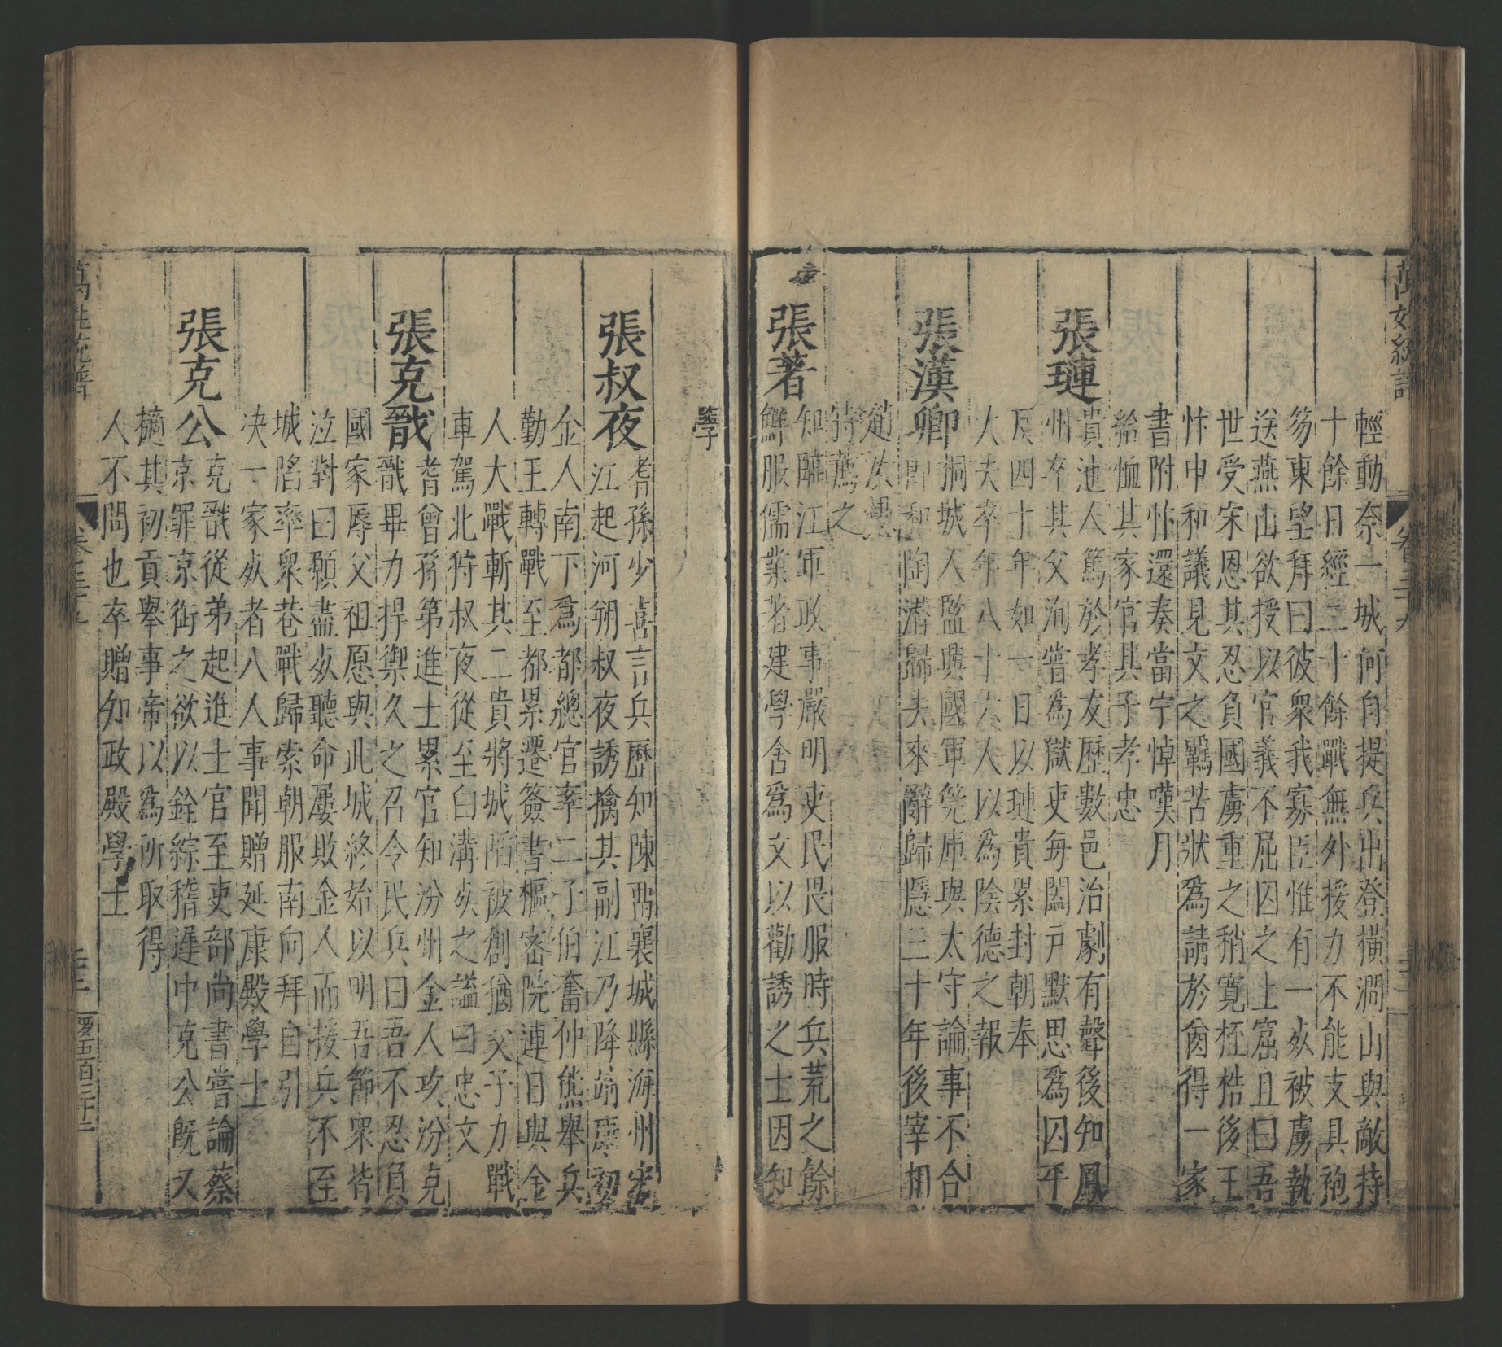 萬姓統譜
卷三十九
輕動奈一城何自提兵出登橫澗山與敵持
十餘日經三十餘戰無外援力不能支具袍
笏東望拜曰彼衆我寡臣惟有一死被虜執
送燕山欲授以官義不屈囚之土窟且曰吾
世受宋恩其忍負國虜重之稍寬桎梏後王
忭申和議見文之羈苦狀爲請於酋得一家
書附忭還奏當宁悼嘆月
給恤其家官其子孝忠
張璉
貴池人篤於孝友歷數邑治劇有聲後知鳳
州卒其父洵嘗爲獄吏每闔戸默思爲囚平
反四十年如一日以璉貴累封朝奉
大夫卒年八十六人以爲陰德之報
張漢卿
桐城人監興國軍筦庫與太守論事不合
即和陶潛歸去來辭歸隱三十年後宰相
趙汝愚
特薦之
張著
知臨江軍政事嚴明吏民畏服時兵荒之餘
鮮服儒業者建學舍爲文以勸誘之士因知
學
張叔夜
耆孫少喜言兵歷知陳留襄城縣海州宋
江起河朔叔夜誘擒其副江乃降靖康初
金人南下爲都總官率二子伯奮仲熊舉兵
勤王轉戰至都累遷簽書樞密院連日與金
人大戰斬其二貴將城陷被創猶父子力戰
車駕北狩叔夜從至白溝死之謚曰忠文
張克戩
耆曾孫第進士累官知汾州金人攻汾克
戩畢力捍禦久之召令民兵曰吾不忍負
國家辱父祖愿與此城終始以明吾節衆皆
泣對曰願盡死聽命屢敗金人而援兵不至
城陷率衆巷戰歸索朝服南向拜自引
决一家死者八人事聞贈延康殿學士
張克公
克戩從弟起進士官至吏部尚書嘗論蔡
京罪京銜之欲以銓綜稽遲中克公旣又
擿其初貢舉事帝以爲所取得
人不問也卒贈知政殿學士
萬姓統譜
卷三十九